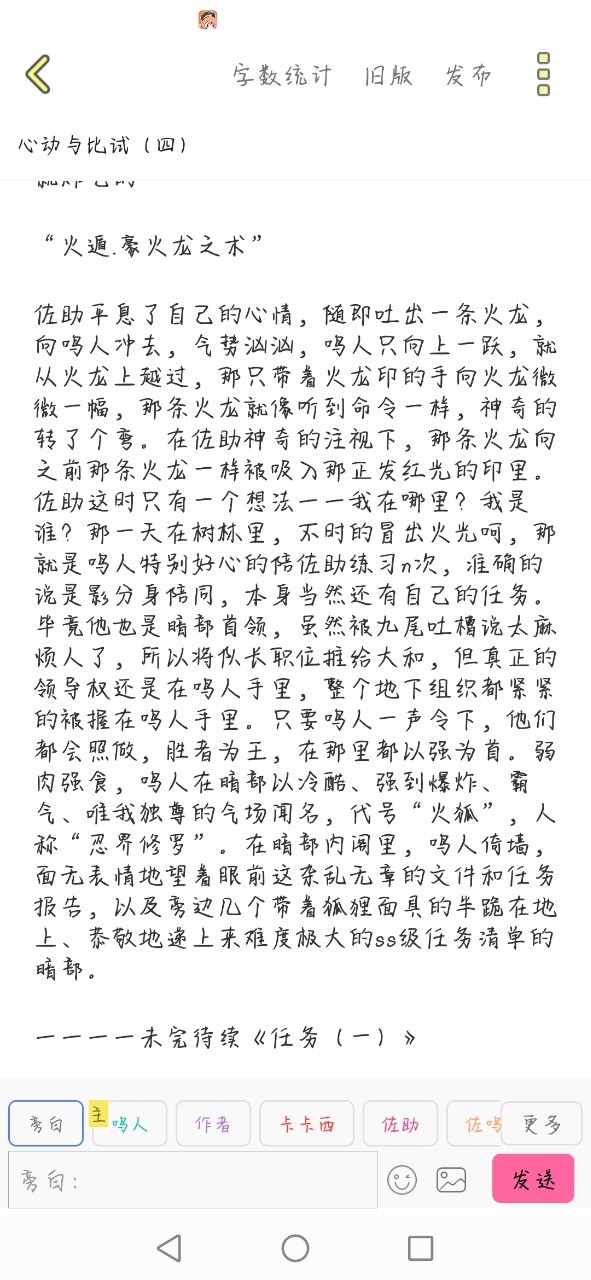 字数统计 旧版 发布
心动与比试（四）
“火遁.豪火龙之术”
佐助平息了自己的心情，随即吐出一条火龙，
向鸣人冲去，气势汹汹，鸣人只向上一跃，就
从火龙上越过，那只带着火龙印的手向火龙微
微一幅，那条火龙就像听到命令一样，神奇的
转了个弯。在佐助神奇的注视下，那条火龙向
之前那条火龙一样被吸入那正发红光的印里。
佐助这时只有一个想法一一我在哪里？我是
谁？那一天在树林里，不时的冒出火光呵，那
就是鸣人特别好心的陪佐助练习n次，准确的
说是影分身陪同，本身当然还有自己的任务。
毕竟他也是暗部首领，虽然被九尾吐槽说太麻
烦人了，所以将队长职位推给大和，但真正的
领导权还是在鸣人手里，整个地下组织都紧紧
的被握在鸣人手里。只要鸣人一声令下，他们
都会照做，胜者为王，在那里都以强为首。弱
肉强食，鸣人在暗部以冷酷、强到爆炸、霸
气、唯我独尊的气场闻名，代号“火狐”，人
称“忍界修罗”。在暗部内阁里，鸣人倚墙，
面无表情地望着眼前这杂乱无章的文件和任务
报告，以及旁边几个带着狐狸面具的半跪在地
上、恭敬地递上来难度极大的ss级任务清单的
暗部。
一一一一未完待续《任务（一）》
旁白 主 鸣人 作者 卡卡西 佐助 佐鸣 更多
旁白： 发送